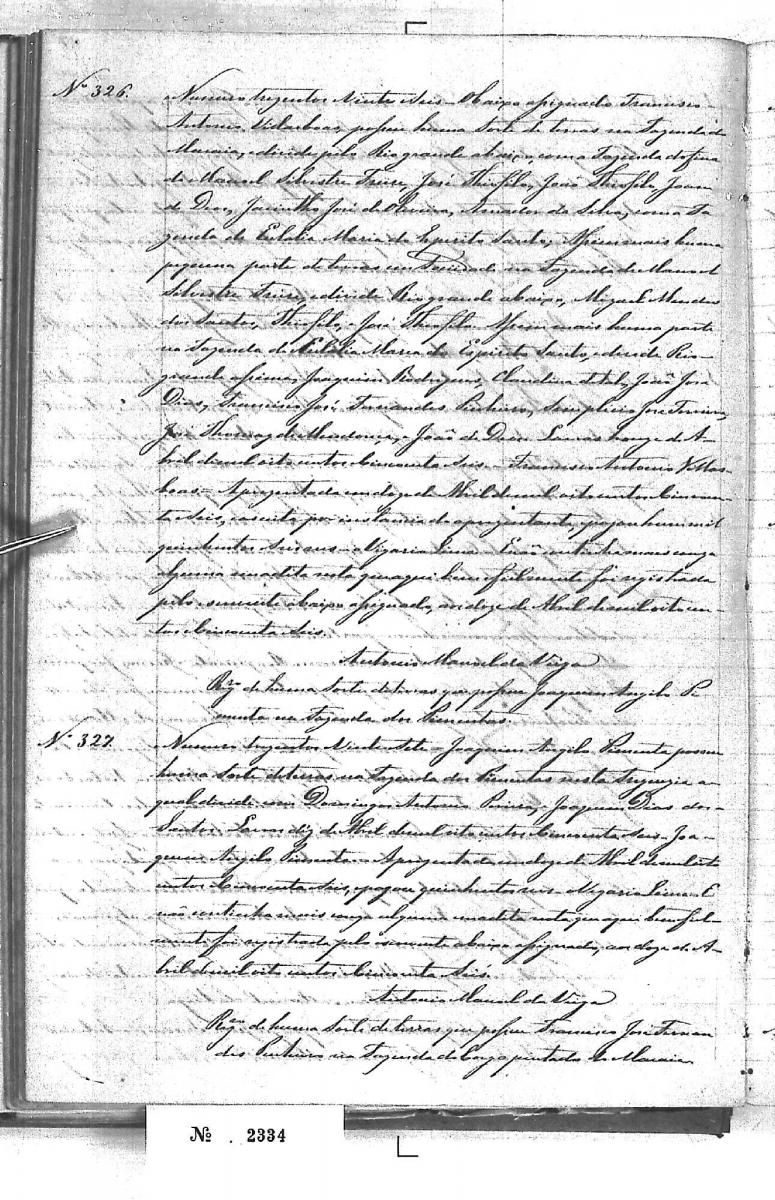 Nº 326.
Numero trezentos Vinte Seis O abaixo assignado Francisco
Antonio Vilasboas, possue huma Sorte de terras na Fazenda de
Macaia, e divide pelo Rio grande abaixo, com a Fazenda
de Manoel Silvestre Freire, José Theofilo, João Theofilo, Joam
de Deos, Jacintho José de Oliveira, Amador da Silva, e com a Fa-
zenda de Eulalia Maria do Espirito Santo, Assim mais huma
pequena parte de terras em na Fazenda de Manoel
Silvestre Freire, e divide Rio grande abaixo, Miguel Mendes
dos Santos, Theofilo, e José Theofilo. Assim mais huma parte
na Fazenda de Eulalia Maria do Espirito Santo, e divide Rio
grande assima, Joaquim Rodrigues, Claudina de tal, João José
Dias, Francisco José Fernandes Pinheiro, Simplicio José Ferreira,
José Thomaz de Mendonça, e João de Deos. Lavras honze de A-
bril de mil oito centos Cincoenta Seis = Francisco Antonio Villas-
boas = Aprezentada em doze de Abril de mil oito centos Cincoen-
ta Seis, escrita por instancia do aprezentante, e pagou hum mil
quinhentos Seis reis = Vigario Lima = E não continha mais couza
alguma em a dita nota que aqui bem e fielmente foi registrada
pelo escrevente abaixo assignado, aos doze de Abril de mil oito cen-
tos Cincoenta Seis.
Antonio Manoel da Veiga
Rgº de huma Sorte de terras que possue Joaquim Angelo Pi-
menta na Fazenda dos Pimentas.
Nº 327.
Numero trezentos Vinte Sete = Joaquim Angelo Pimenta possue
huma Sorte de terras na Fazenda dos Pimentas nesta Freguezia a
qual divide com Domingos Antonio Pereira, e Joaquim Dias dos
Santos. Lavras dez de Abril de mil oito centos Cincoenta Seis = Joa-
quim Angelo Pimenta = Aprezentada em doze de Abril de mil oito
centos Cincoenta Seis, e pagou quinhentos reis = Vigario Lima = E
não continha mais couza alguma em a dita nota que aqui bem e fiel-
mente foi registrada pelo escrevente abaixo assignado, aos doze de A-
bril de mil oito centos Cincoenta Seis.
Antonio Manoel da Veiga
Rgº de huma Sorte de terras que possue Francisco José Fernan
des Pinheiro na Fazenda de e Macaia
Nº 2334